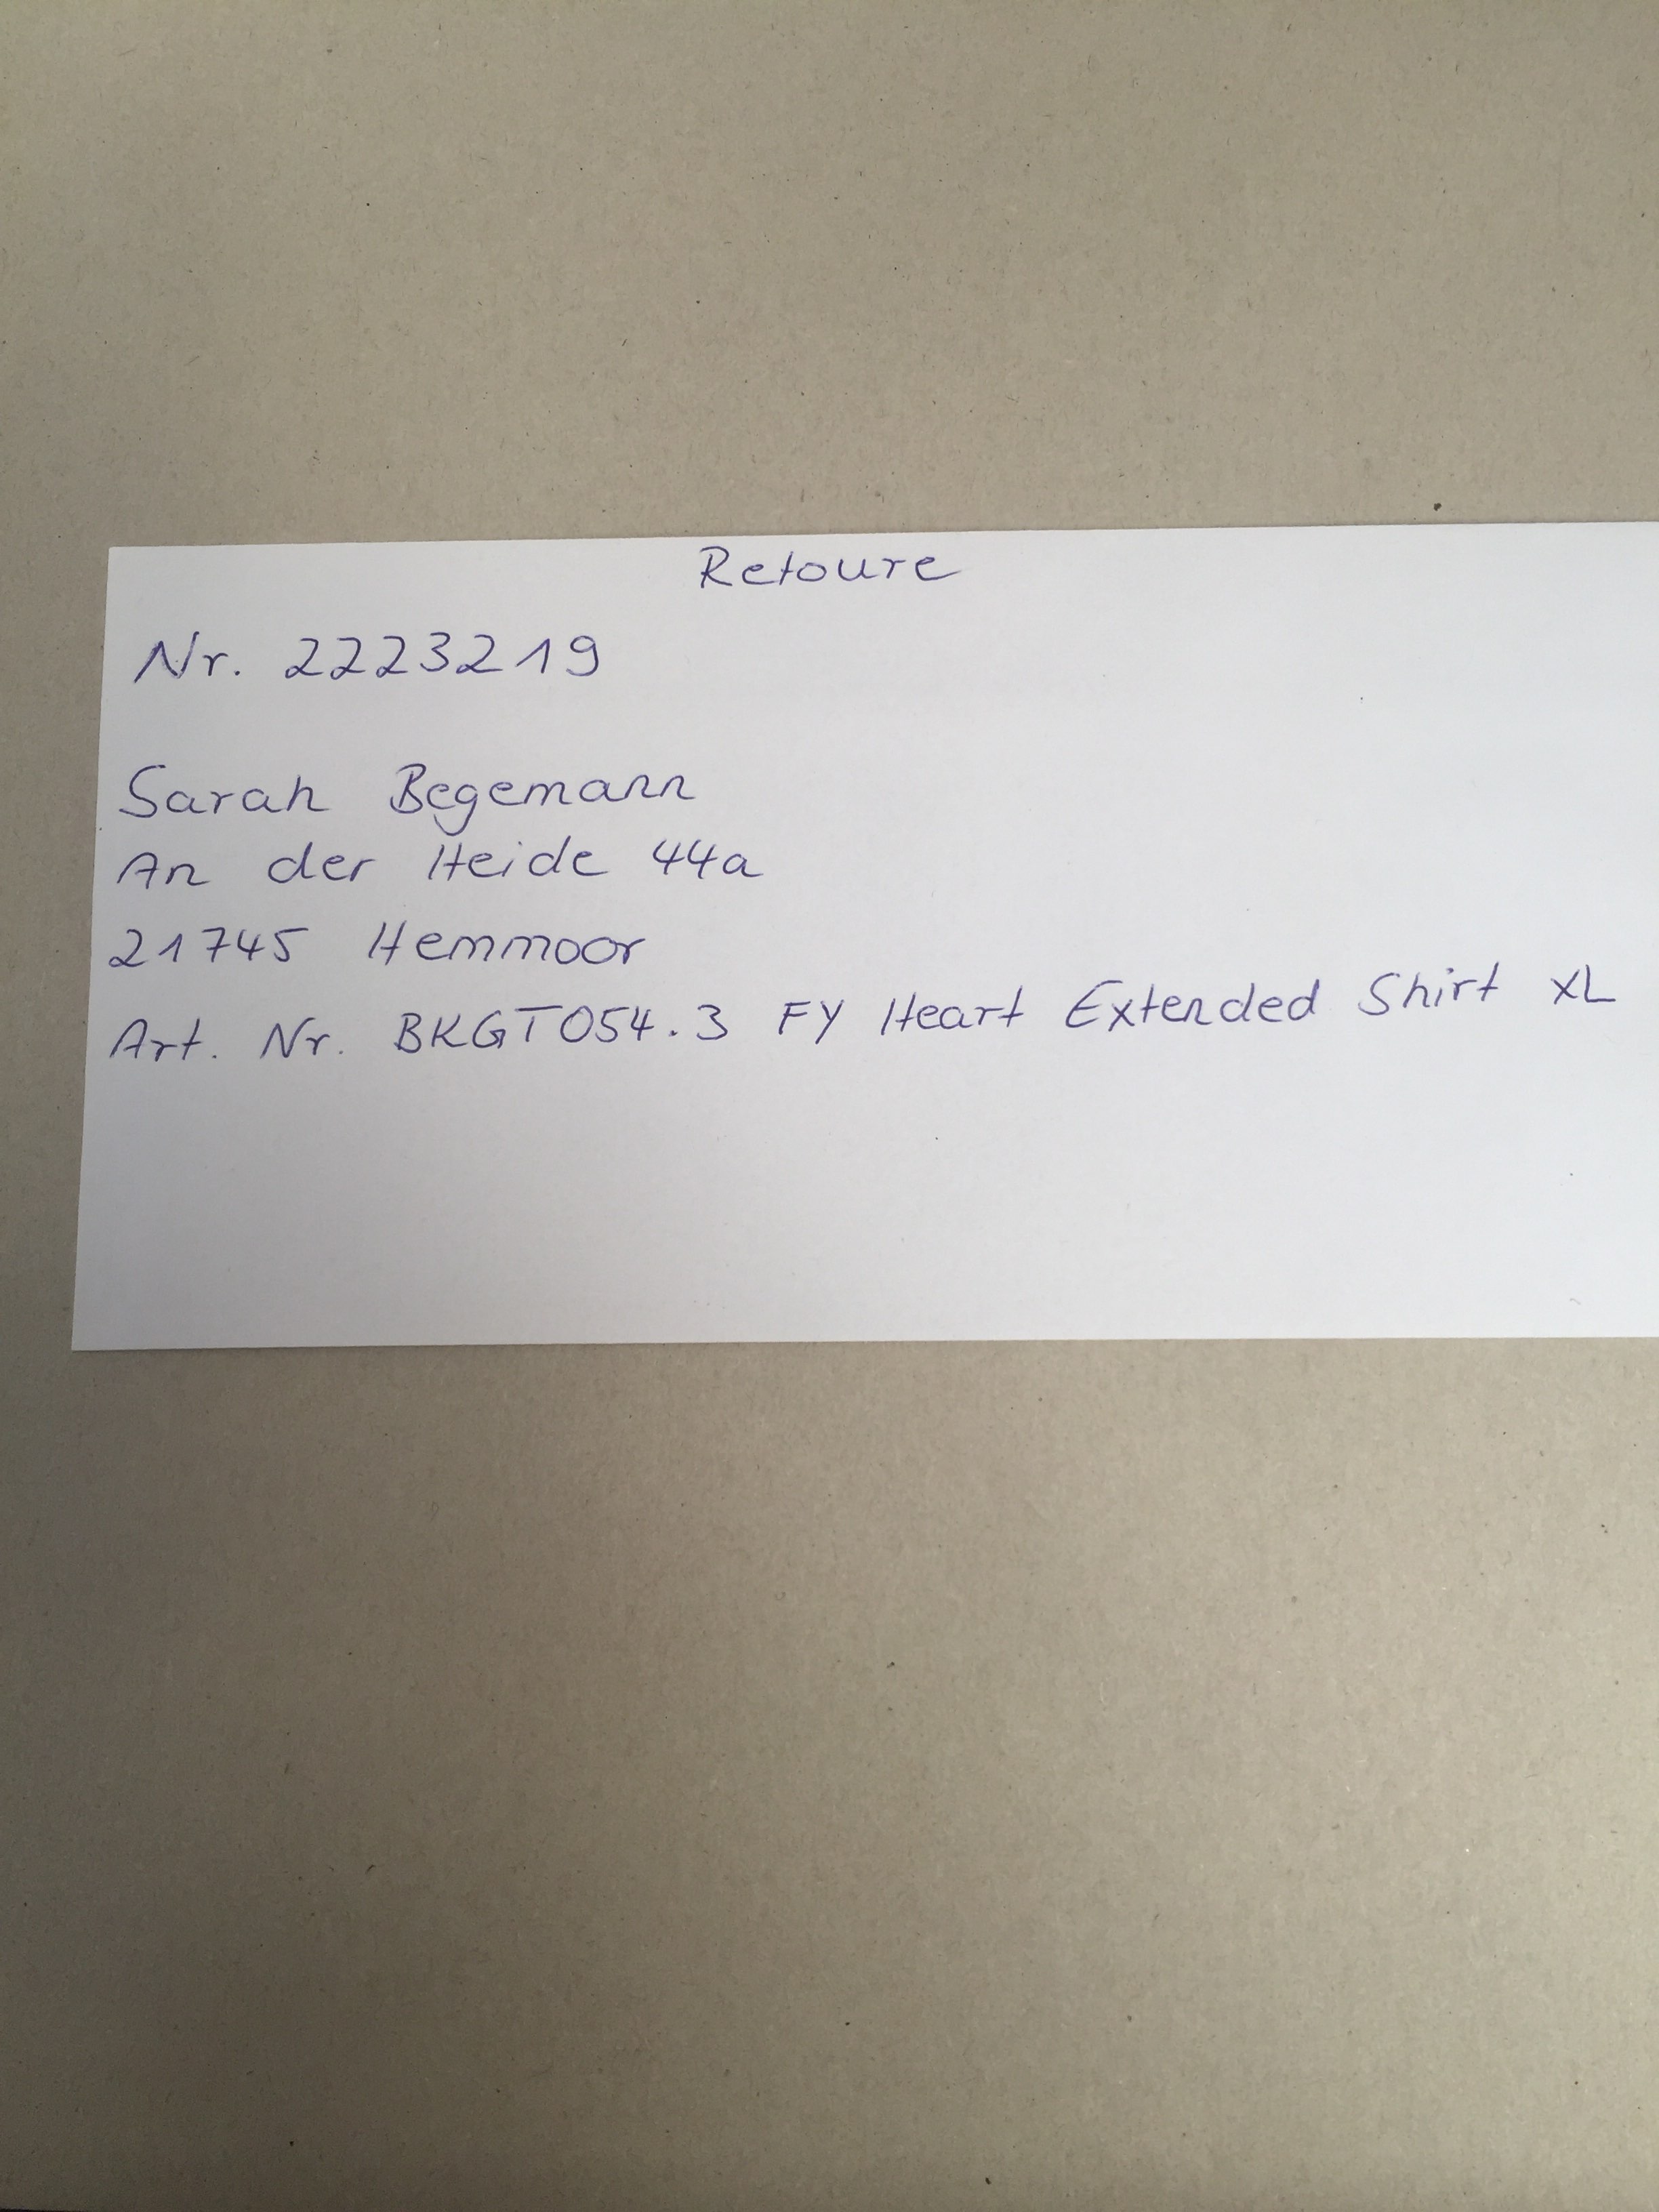 Retoure
Nr. 2223219
Sarah Begemann
An der Heide 44a
21745 Hemmoor
Art. Nr. BKGT054.3 FY Heart Extended Shirt XL